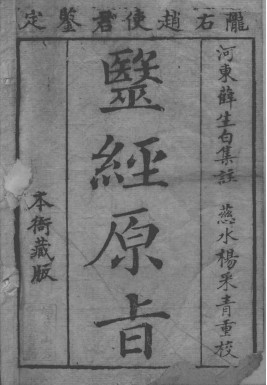 隴右趙使君鑒定
河東薛生白集註　慈水楊采青重校
毉經原旨
本衙藏版